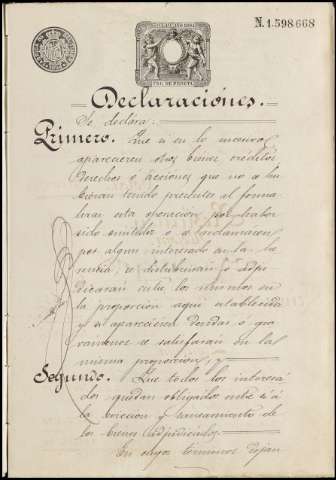 N. 1.598.668
Declaraciones.
Se declara:
Primero. Que si en lo sucesivo
aparecieren otros bienes créditos
derechos ó acciones que no se hu
bieran tenido presentes al forma
lizar esta operacion por haber
sido omitidos ó á reclamacion
por algun interesado en la he
rencia, se distribuiran ó adju
dicaran entre los mismos en
la proporcion aqui establecida
y si aparecieren deudas ó gra
vamenes se satisfaran en la
misma proporcion, y
Segundo. Que todos los interesa
dos quedan obligados entre si á
la eviccion y saneamiento de
los bienes adjudicados.
En cuyos terminos dejan